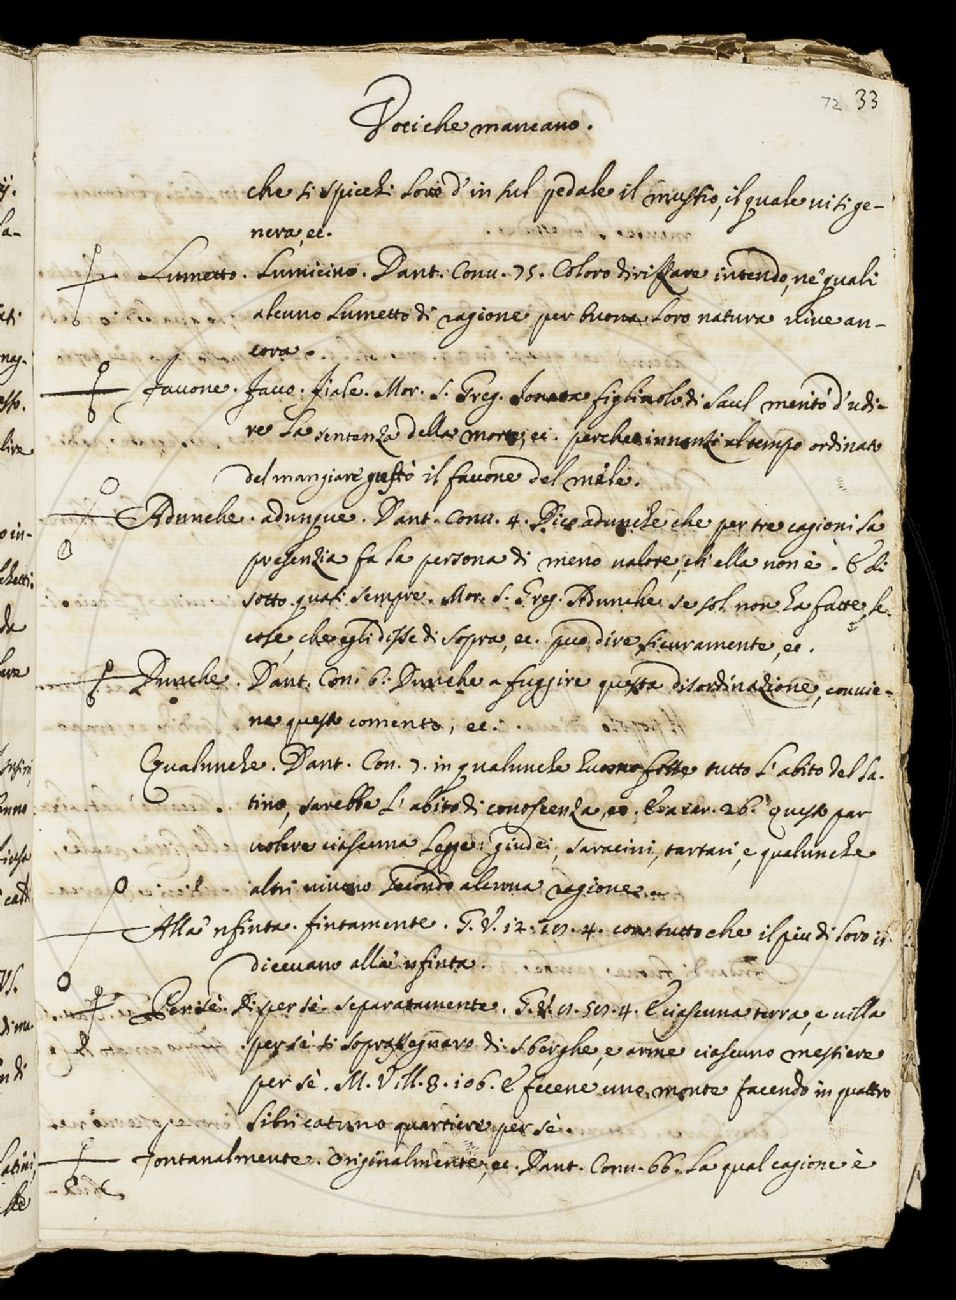 72 33
Voci che mancano.
che si spicchi loro d'in sul pedale il muschio, il quale vi si ge-
nera, ec.
Lumetto. Lumicino. Dant. Conv. 75. Coloro dirizzare intendo, ne' quali
alcuno lumetto di ragione per buona loro natura vive an-
cora.
Favone. Favo. fiale. Mor. S. Greg. Jonata figliuolo di Saul meritò d'udi-
re la sentenza della morte, ec. perchè innanzi al tempo ordinato
del mangiare gustò il favone del mèle.
Adunche. adunque. Dant. Conv. 4. Dico adunche che per tre cagioni la
presenzia fa la persona di meno valore, ch'ella non è. E di
sotto quasi sempre. Mor. S. Greg. Adunche se sol non ha fatte, le
cose, che egli disse di sopra, ec. può dire sicuramente, ec.
Dunche. Dant. Con. 6. Dunche a fuggire questa disordinazione, convie-
ne questo comento, ec.
Qualunche. Dant. Con. 7. in qualunche huomo fosse tutto l'abito del la-
tino, sarebbe l'abito di conoscenza, ec. 26. questo par
volere ciascuna Legge: giudei, saracini, tartari, e qualunche
altri vivono secondo alcuna ragione.
Alla 'nfinta. fintamente. G. V. 12. 4. con tutto che il più di loro il
dicevano alla 'nfinta.
Per sè. Di per sè. separatamente. G. V. 4. E ciascuna terra, e villa
per sè si soprassegnaro di sberghe, e arme ciascuno mestiere
per sè. M. Vill. 8. 106. E fecene uno monte facendo in quattro
libri catuno quartiere per sè.
Fontanalmente. Originalmente, ec. Dant. Conv. 66. La qual cagione è